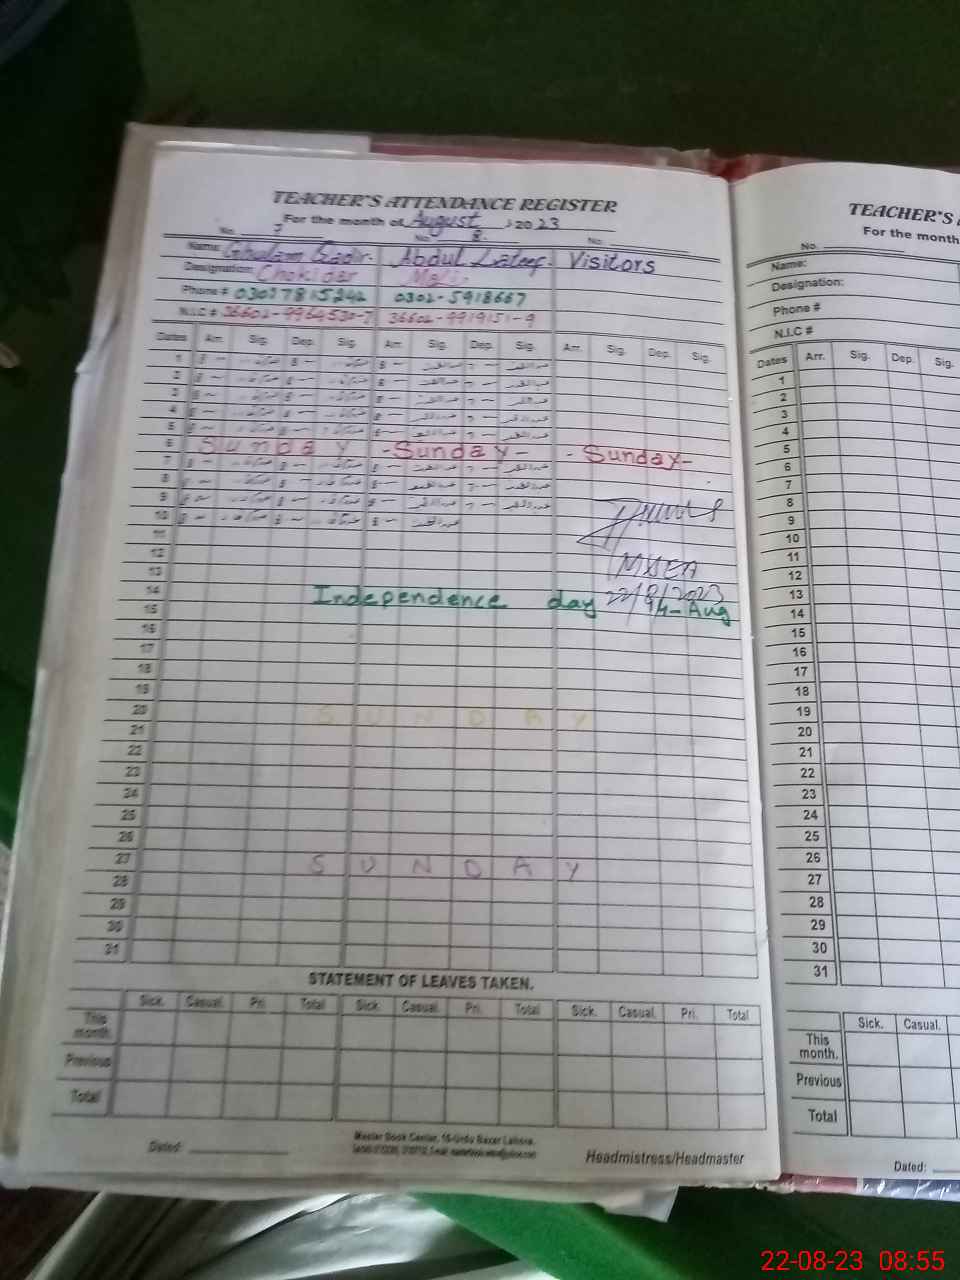 TEACHER'S ATTENDANCE REGISTER
For the month of August 2023
No. 7 No. 8. No.
Name: Ghulam Qadir. Abdul Lateef. Visitors
Designation: Chokidar Mali
Phone # 03057815242 0302-5918667
N.I.C # 36602-9964530-7 36602-9919151-9
Dates Arr. Sig. Dep. Sig. Arr. Sig. Dep. Sig. Arr. Sig. Dep. Sig.
1
2
3
4
5
6 Sunday -Sunday- -Sunday-
7
8
9
10
11
12
MSEA
13
22/8/2023
14 Independence day 14-Aug
15
16
17
18
19
20 SUNDAY
21
22
23
24
25
26
27 SUNDAY
28
29
30
31
STATEMENT OF LEAVES TAKEN.
Sick. Casual. Pri. Total Sick. Casual. Pri. Total Sick. Casual. Pri. Total
This month.
Previous
Total
Dated:
Master Book Center, 16-Urdu Bazar Lahore.
Headmistress/Headmaster
TEACHER'S
For the month
No.
Name:
Designation:
Phone #
N.I.C #
Dates Arr. Sig. Dep. Sig.
1
2
3
4
5
6
7
8
9
10
11
12
13
14
15
16
17
18
19
20
21
22
23
24
25
26
27
28
29
30
31
Sick. Casual.
This month.
Previous
Total
Dated:
22-08-23 08:55